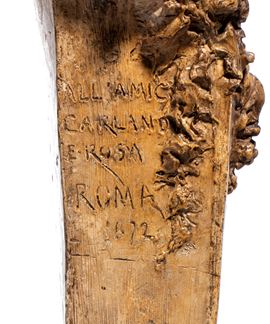 ALL'AMIC
CARLAND
E ROSA
ROMA
1872